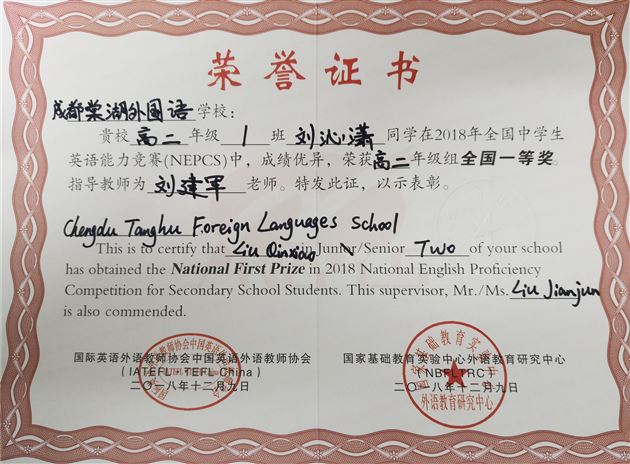 荣誉证书
成都棠湖外国语学校：
贵校高二年级1班刘沁潇同学在2018年全国中学生
英语能力竞赛(NEPCS)中，成绩优异，荣获高二年级组全国一等奖
指导教师为刘建军老师。特发此证，以示表彰。
Chengdu Tanghu Foreign Languages School
This is to certify that Liu Qinxiao in Junior/Senior Two of your school
has obtained the National First Prize in 2018 National English Proficiency
Competition for Secondary School Students. This supervisor, Mr./Ms. Liu Jianjun
is also commended.
国际英语外语教师协会中国英语外语教师协会
(IATEFL·TEFL China)
二〇一八年十二月九日
国家基础教育实验中心外语教育研究中心
(NBFLTRC)
二〇一八年十二月九日
外语教育研究中心